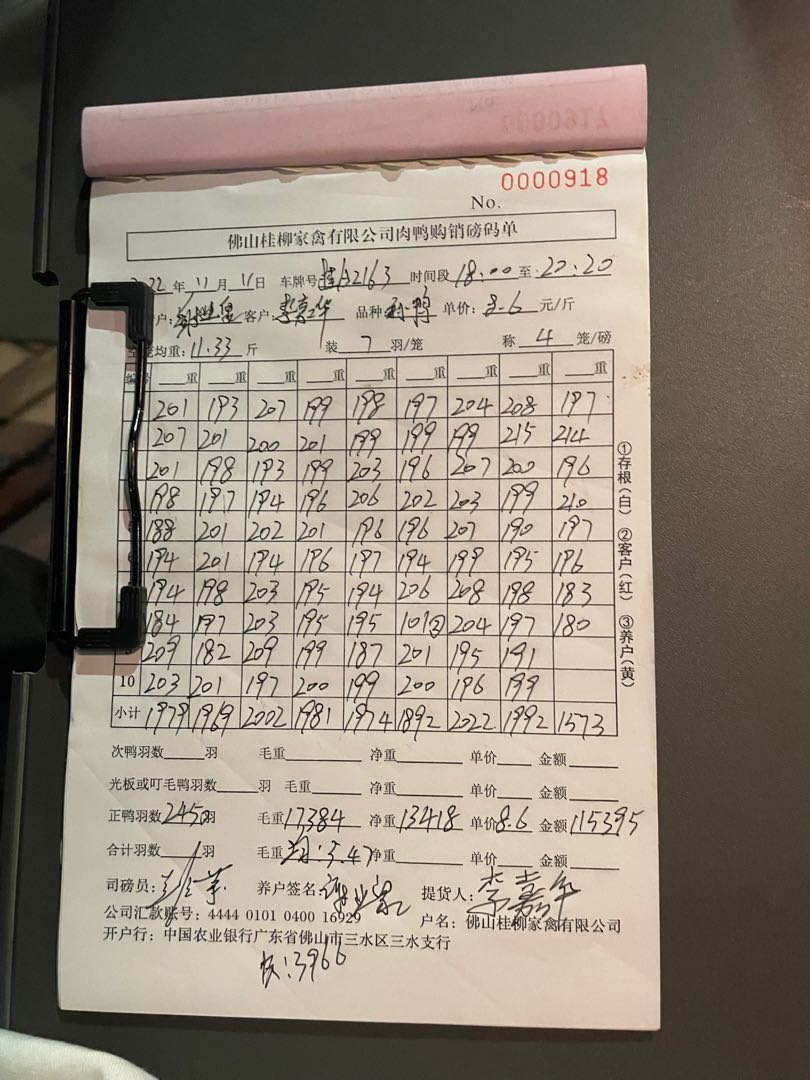 No. 0000918
佛山桂柳家禽有限公司肉鸭购销磅码单
22年11月11日 车牌号桂 2163 时间段18:00至20:20
户: 客户:李嘉华 品种: 鸭 单价:8.6元/斤
笼均重:11.33斤 装7羽/笼 称4笼/磅
编号 重 重 重 重 重 重 重 重 重
201 193 207 199 198 197 204 208 197
207 201 200 201 199 199 199 215 214
201 198 193 199 203 196 207 200 196
198 197 194 196 206 202 203 199 210
188 201 202 201 196 196 207 190 197
194 201 194 196 197 194 199 195 196
194 198 203 195 194 206 208 198 183
184 197 203 195 195 101② 204 197 180
209 182 209 199 187 201 195 191
10 203 201 197 200 199 200 196 199
小计 1979 1969 2002 1981 1974 1892 2022 1992 1573
①存根(白) ②客户(红) ③养户(黄)
次鸭羽数 羽 毛重 净重 单价 金额
光板或叮毛鸭羽数 羽 毛重 净重 单价 金额
正鸭羽数2450羽 毛重17384 净重13418 单价8.6 金额115395
合计羽数 羽 毛重 均:5.47 净重 单价 金额
司磅员: 养户签名: 提货人:李嘉华
公司汇款账号:4444 0101 0400 16929 户名:佛山桂柳家禽有限公司
开户行:中国农业银行广东省佛山市三水区三水支行
:3966